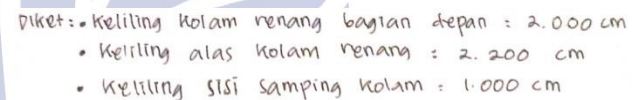 Diket: • Keliling kolam renang bagian depan : 2.000 cm
• Keliling alas kolam renang : 2. 200 cm
• Keliling sisi samping kolam : 1.000 cm